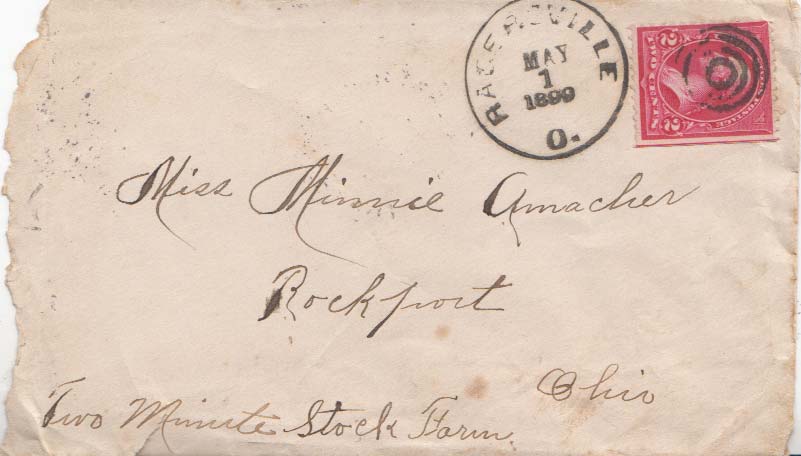 RAGERSVILLE
MAY
1
1899
O.
Miss Minnie Amacher
Rockport
Ohio
Two Minute Stock Farm.